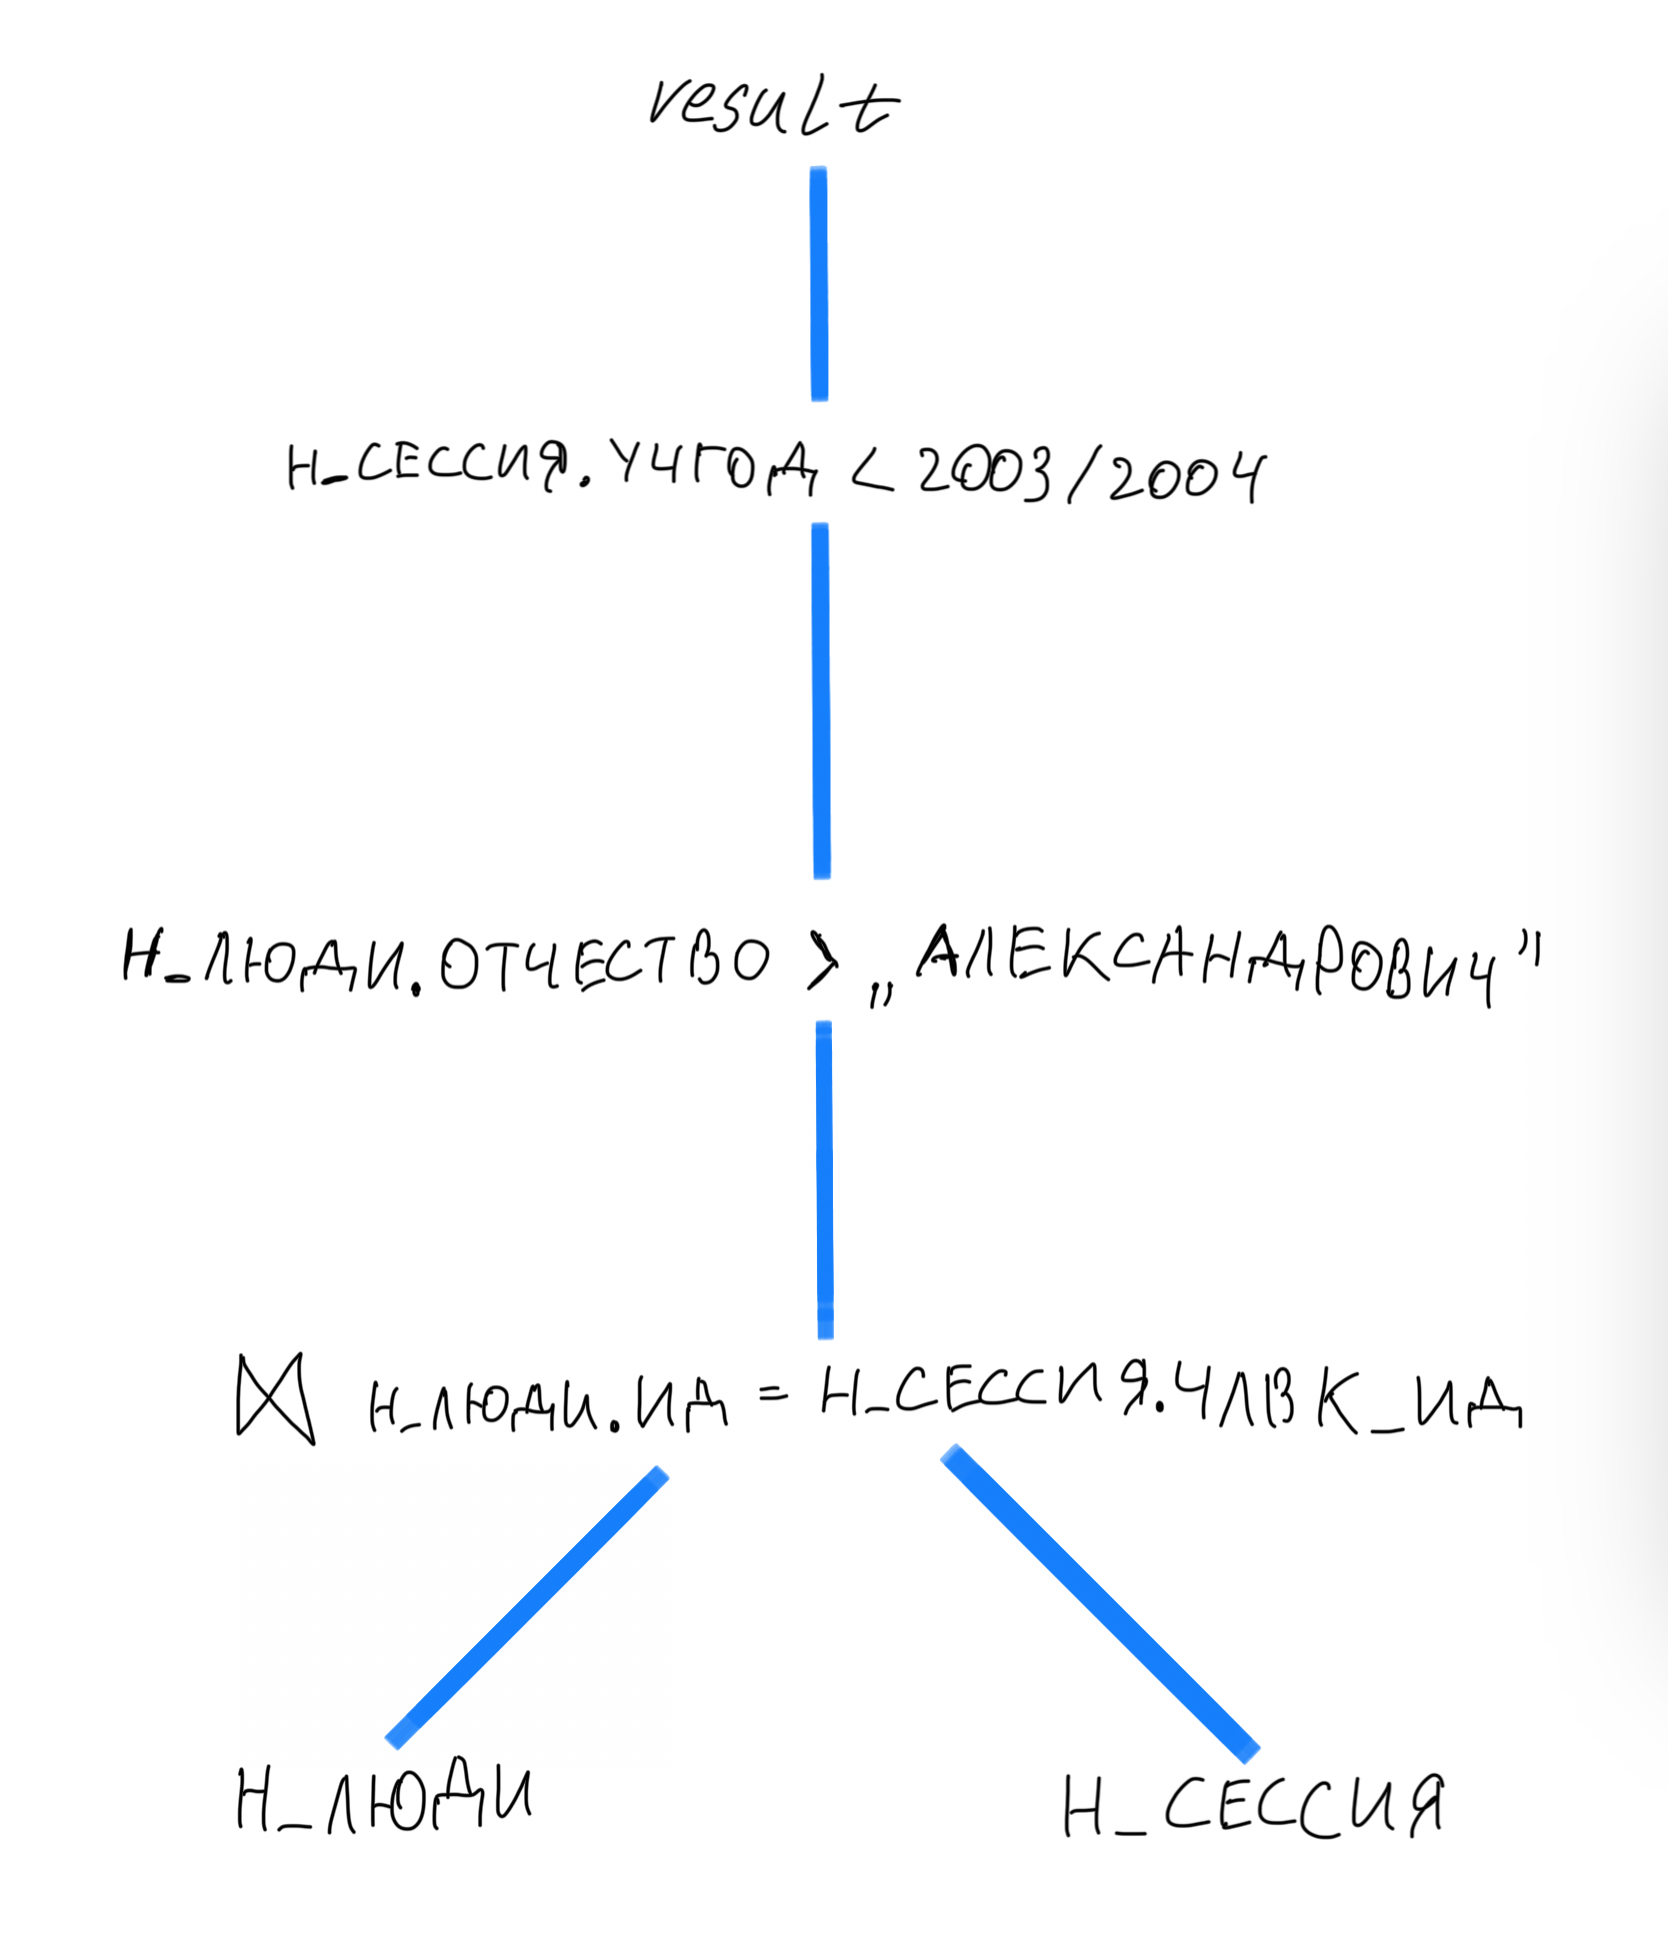 result
Н_СЕССИЯ.УЧГОД < 2003/2004
Н_ЛЮДИ.ОТЧЕСТВО > „АЛЕКСАНДРОВИЧ”
⋈ Н_ЛЮДИ.ИД = Н_СЕССИЯ.ЧЛВК_ИД
Н_ЛЮДИ
Н_СЕССИЯ